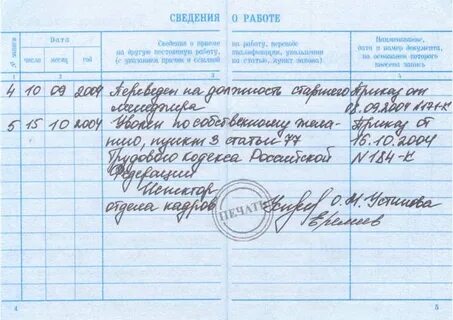 СВЕДЕНИЯ О РАБОТЕ
№ записи
Дата
Сведения о приеме на работу, переводе
на другую постоянную работу, квалификации, увольнении
(с указанием причин и ссылкой на статью, пункт закона)
Наименование,
дата и номер документа,
на основании которого
внесена запись
число месяц год
1 2 3
4 10 09 2004 Переведен на должность старшего Приказ от
менеджера 09.2004 N171-К
5 15 10 2004 Уволен по собственному жела- Приказ от
нию, пункт 3 статьи 77 15.10.2004
Трудового кодекса Российской N184-К
Федерации
Инспектор
отдела кадров О.М. Устинова
ПЕЧАТЬ
Еремеев
4 5